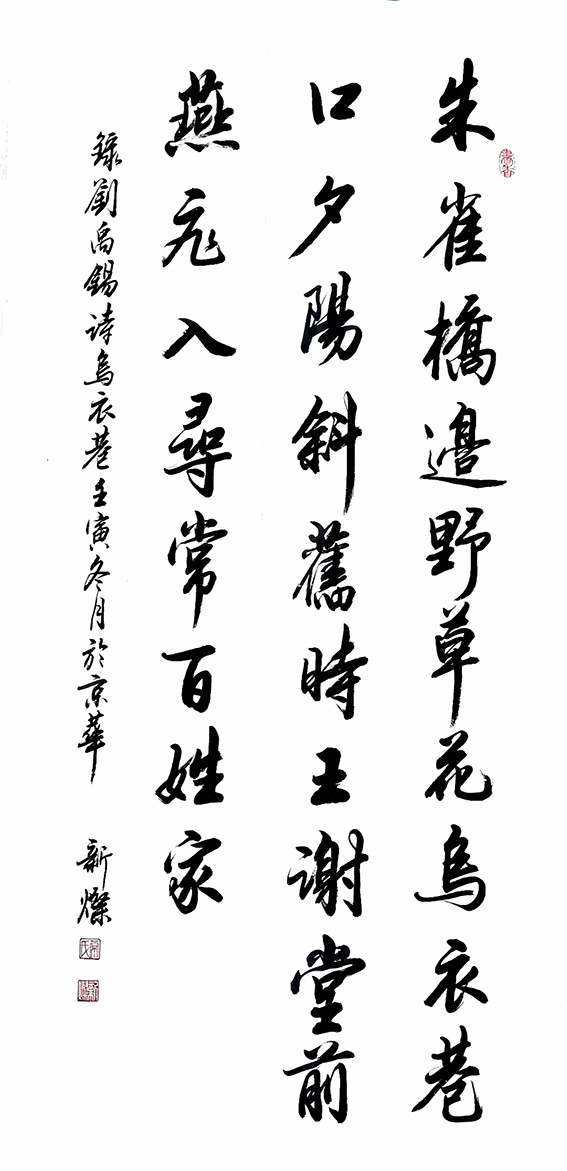 朱雀橋邊野草花烏衣巷
口夕陽斜舊時王謝堂前
燕飛入尋常百姓家
錄劉禹錫詩烏衣巷壬寅冬月於京華
新燦